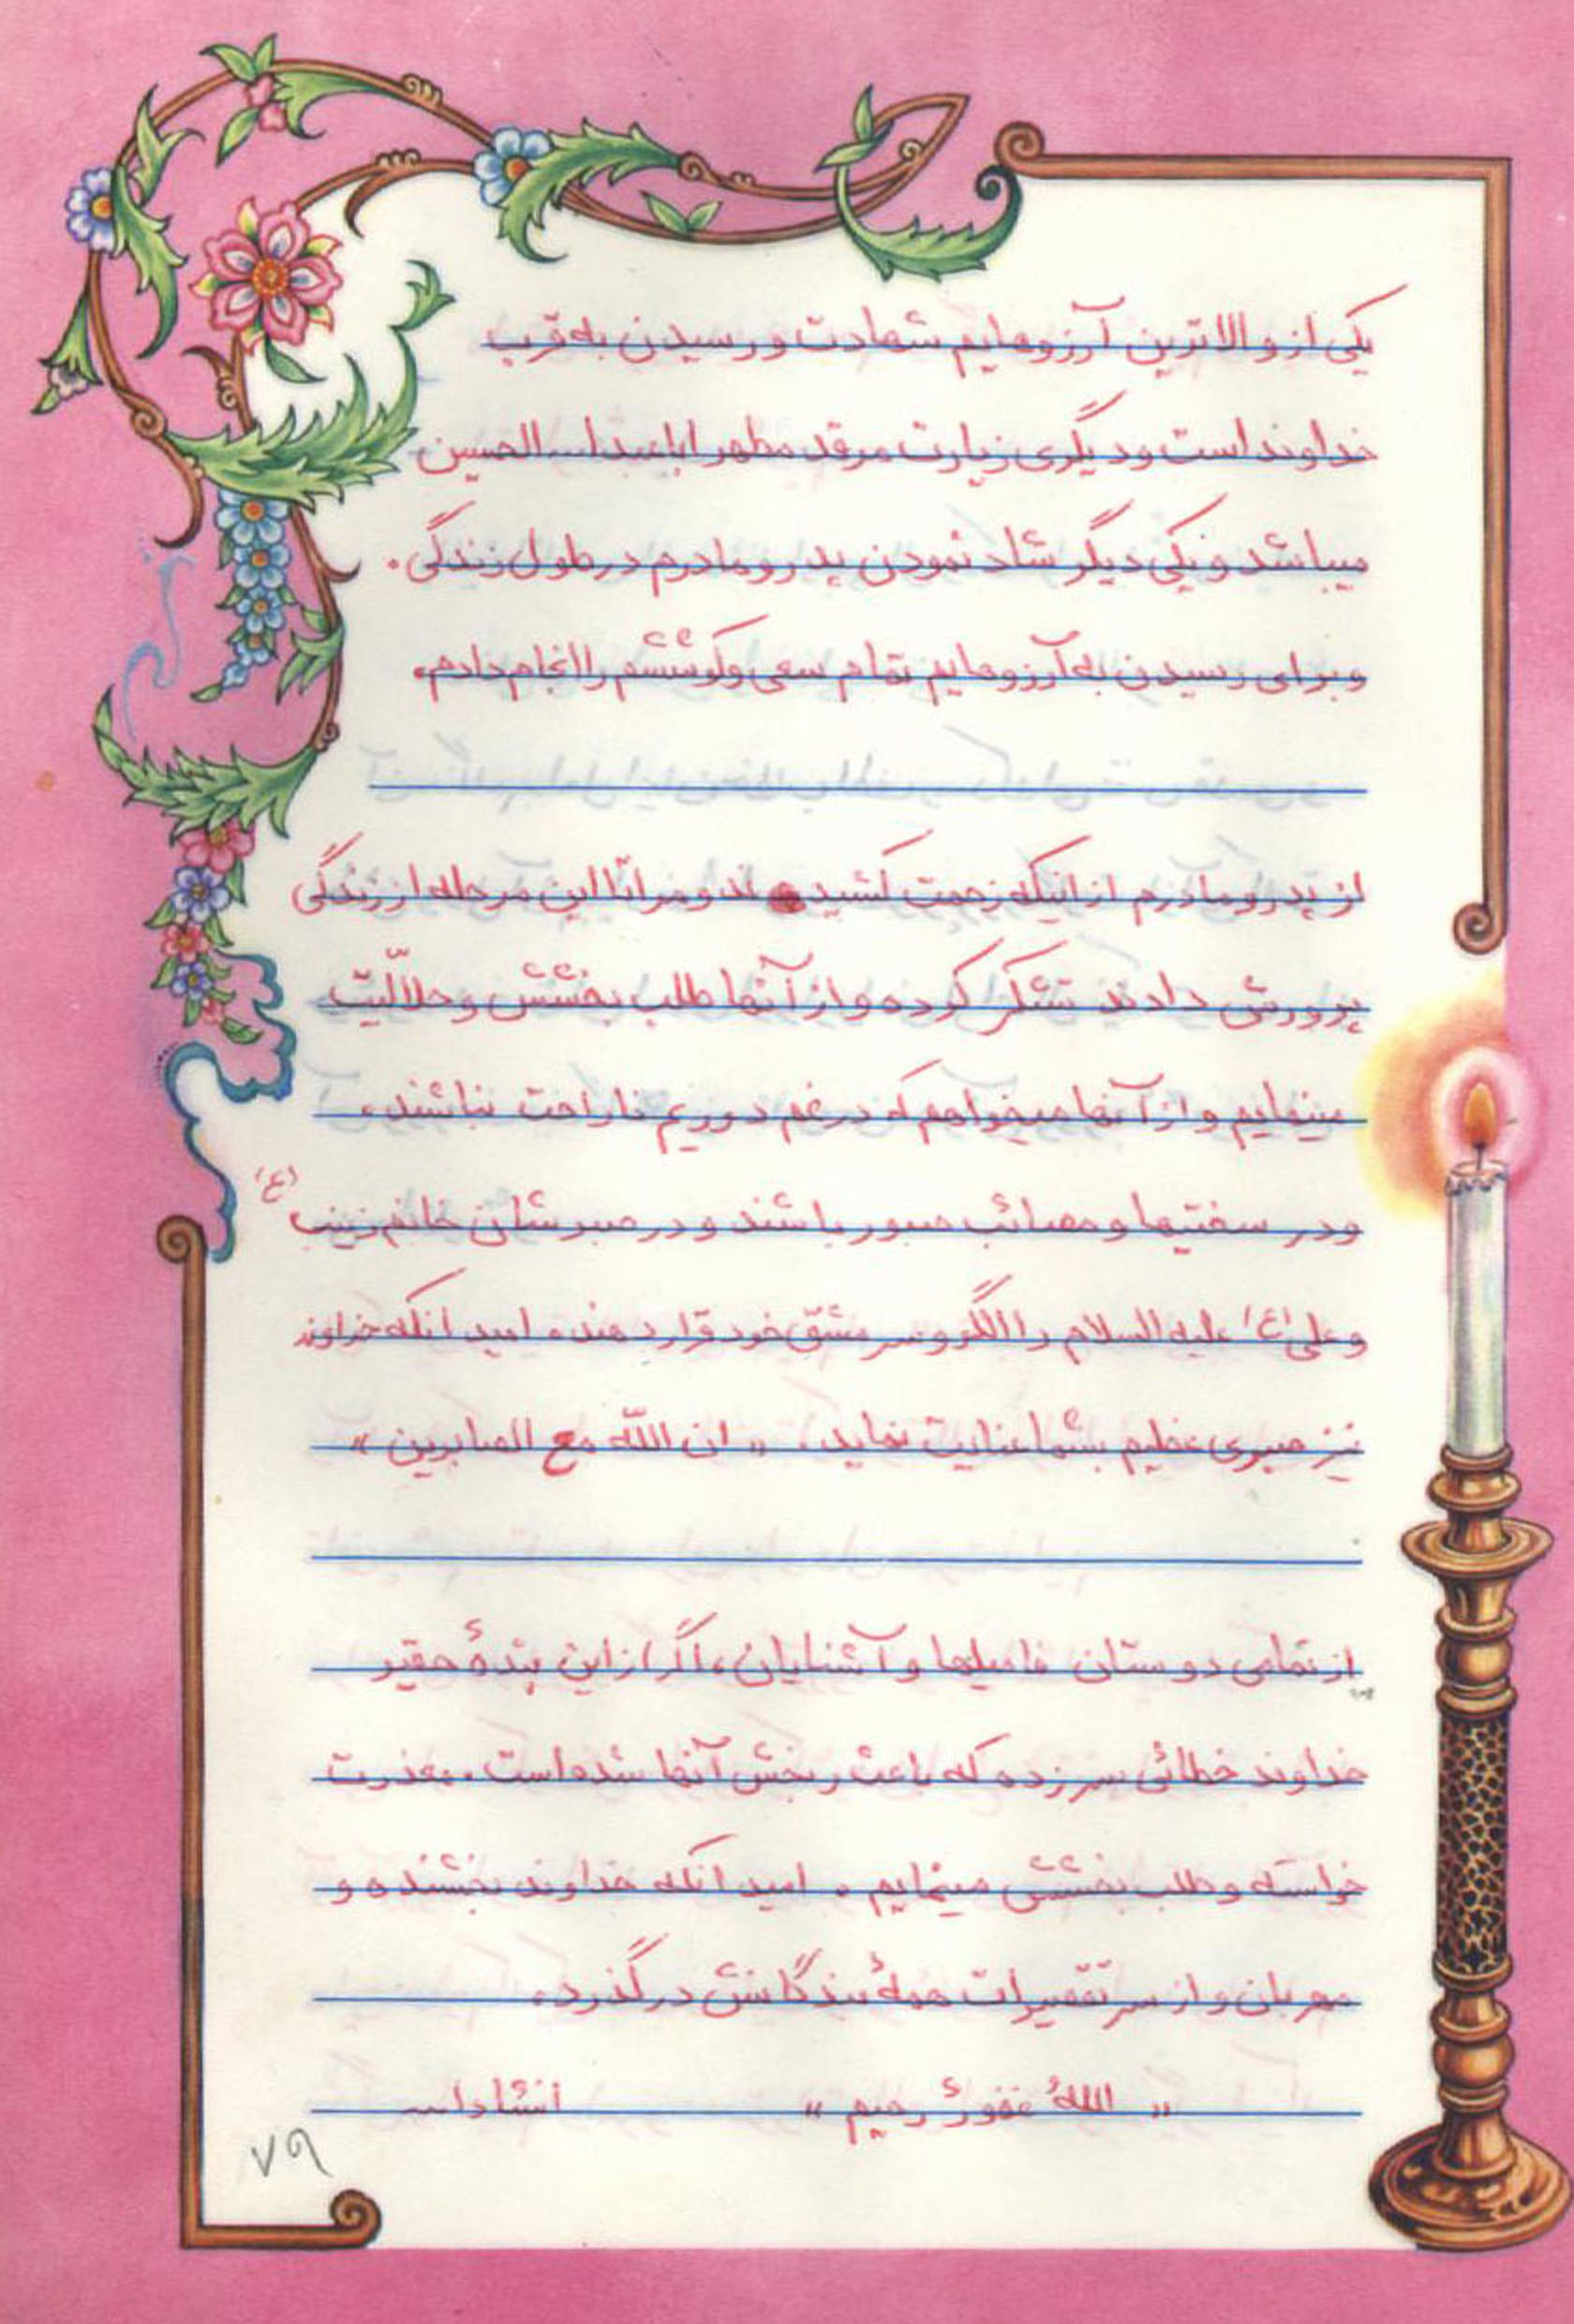 یکی از والاترین آرزوهایم شهادت و رسیدن به قرب
خداوند است و دیگری زیارت مرقد مطهر اباعبدالله الحسین
میباشد و یکی دیگر شاد نمودن پدر و مادرم در طول زندگی.
و برای رسیدن به آرزوهایم تمام سعی و کوششم را انجام دادم.
از پدر و مادرم از اینکه زحمت کشیده اند و مرا تا این مرحله از زندگی
پرورش دادند تشکر کرده و از آنها طلب بخشش و حلالّیت
مینمایم و از آنها میخواهم که در غم دوریم ناراحت نباشند.
و در سختیها و مصائب صبور باشند و در صبرشان خانم زینب (ع)
و علی (ع) علیه السلام را الگو و سر مشقّ خود قرار دهند. امید انکه خداوند
نیز صبری عظیم بشما عنایت نماید. «ان اللّه مع الصابرین»
از تمامی دوستان فامیلها و آشنایان، اگر از این بندهٔ حقیر
خداوند خطائی سر زده که باعث رنجش آنها شده است. معذرت
خواسته و طلب بخشش مینمایم. امید انکه خداوند بخشنده و
مهربان و از سر تقصیرات همهٔ بندگانش در گذرد.
«اللهُ غفورٌ رحیم» انشاءالله
۷۹